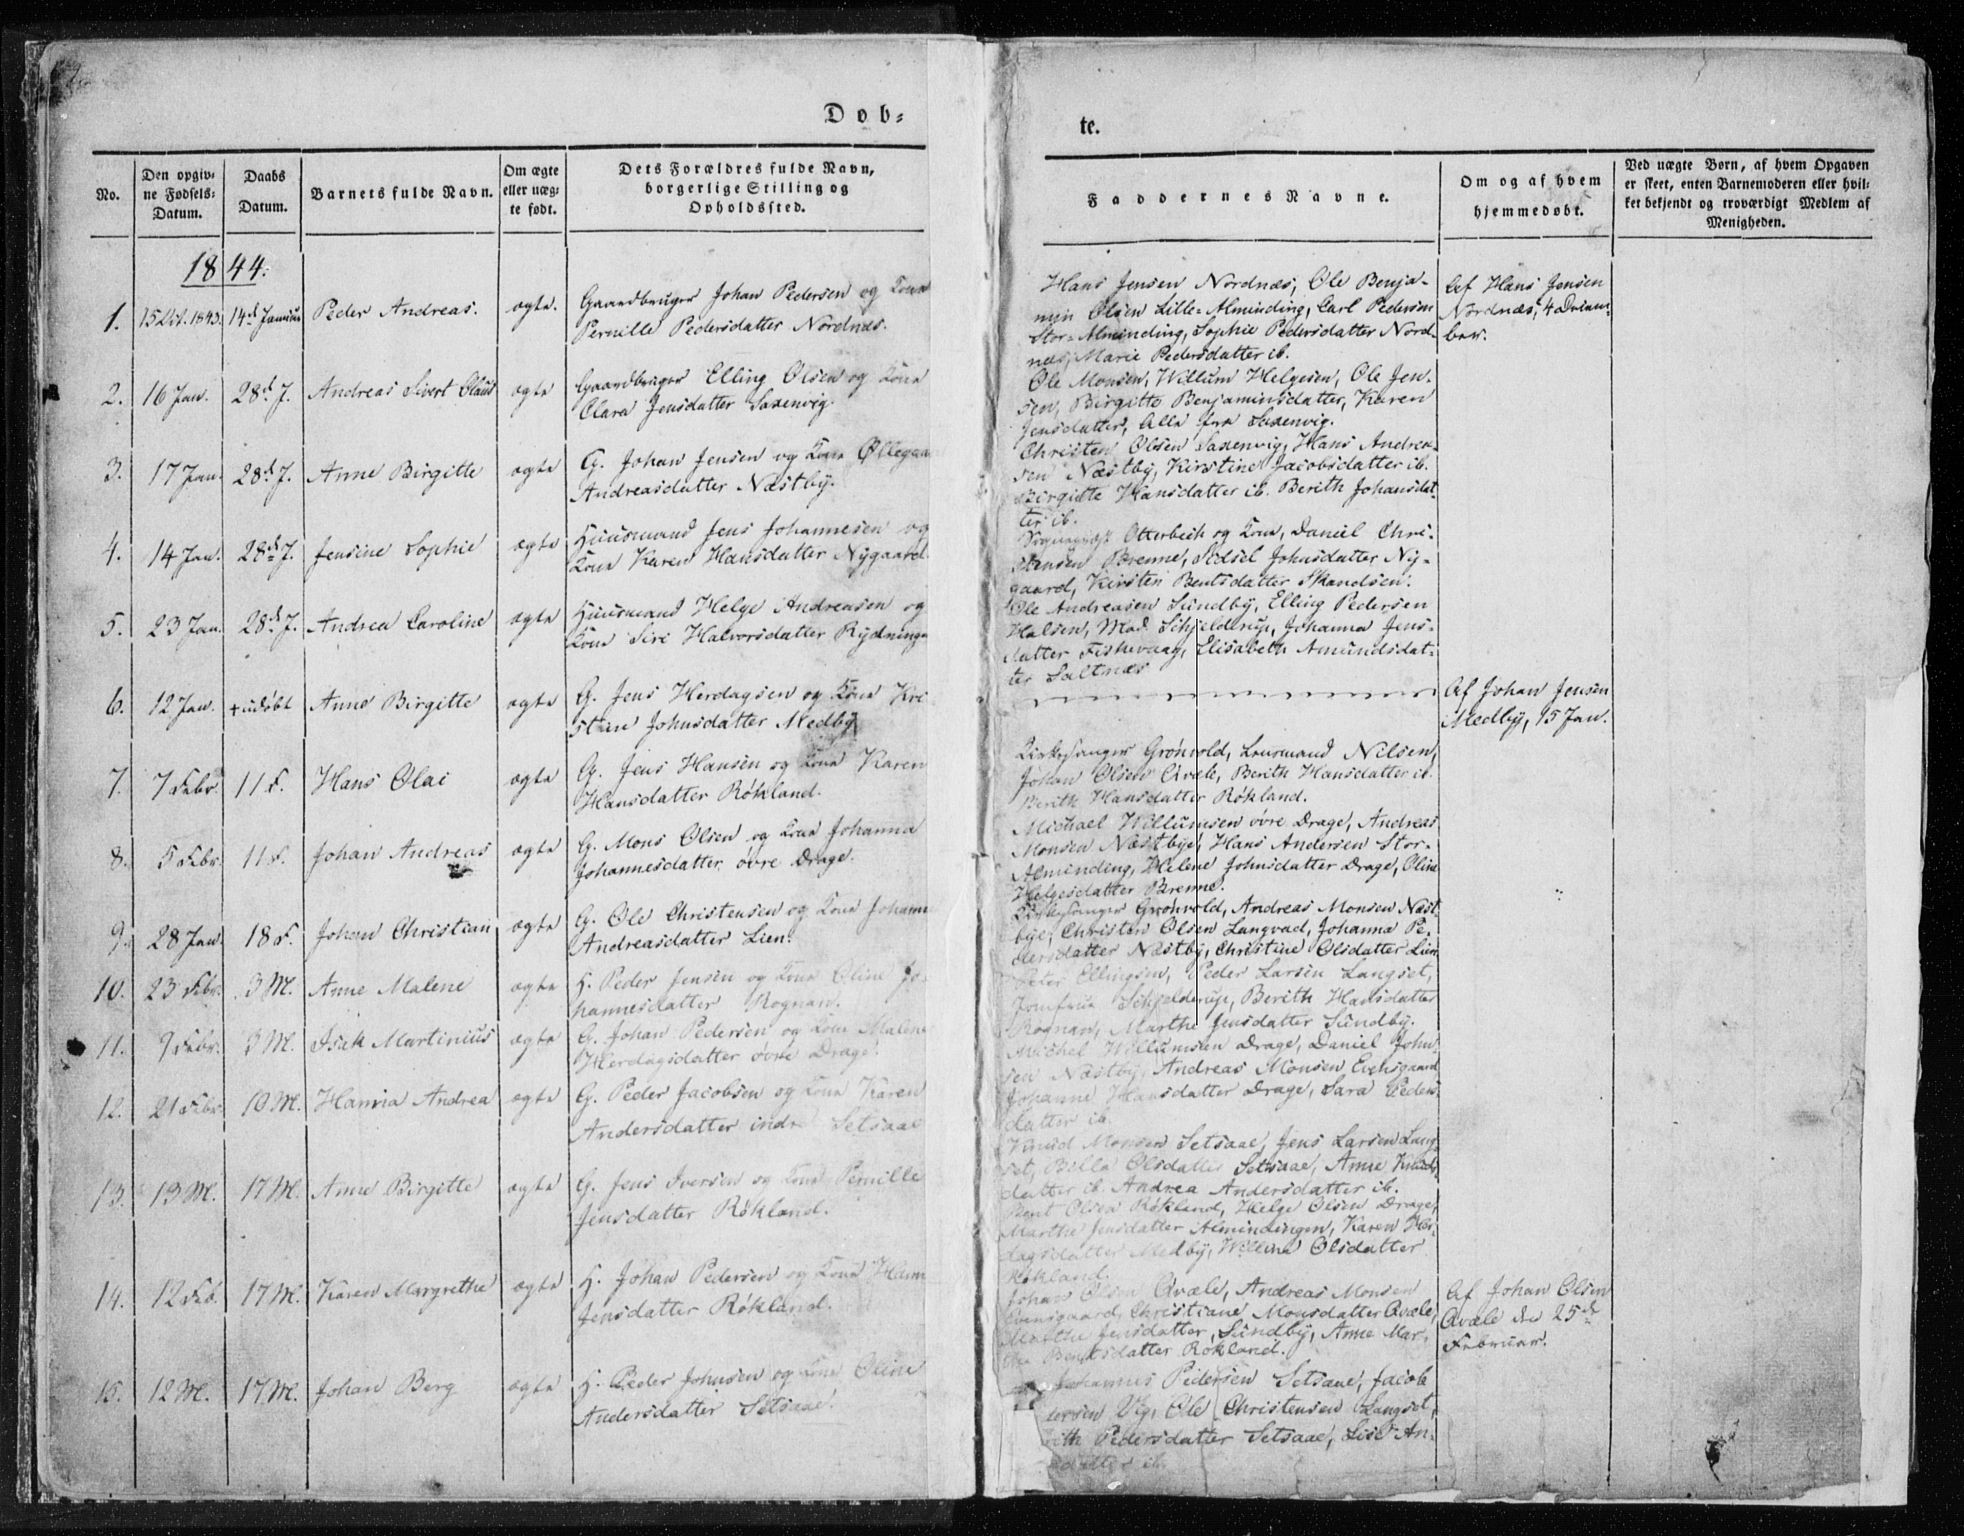 Døb-
No.
Den opgiv-
ne Fødsels-
Datum.
Daabs
Datum.
Barnets fulde Navn.
Om ægte
eller uæg-
te født.
Dets Forældres fulde Navn,
borgerlige Stilling og
Opholdssted.
1844.
1. 15 Oct. 1843. 14de Januar Peder Andreas. ægte. Gaardbruger Johan Pedersen og Kone
Pernille Pedersdatter Nordnæs.
2. 16 Jan. 28de J. Andreas Sivert Olaus ægte Gaardbruger Elling Olsen og Kone
Olara Jensdatter Saxenvig.
3. 17 Jan. 28de J. Anne Birgitte ægte G. Johan Jensen og Kone Øllegaar
Andreasdatter Næstby.
4. 14 Jan. 28de J. Jensine Sophie ægte Huusmand Jens Johannesen og
Kone Karen Hansdatter Nygaard.
5. 23 Jan. 28de J. Andrea Caroline ægte Huusmand Helge Andreasen og
Kone Siri Halvorsdatter Rydninge
6. 12 Jan. + udøbt Anne Birgitte ægte G. Jens Herdagsen og Kone Kri
stine Johnsdatter Medby
7. 7 Febr. 11 F. Hans Olai ægte G. Jens Hansen og Kone Karen
Hansdatter Røkland.
8. 5 Febr. 11 F. Johan Andreas ægte G. Mons Olsen og Kone Johanna
Johannesdatter øvre Drage.
9. 28 Jan. 18 F. Johan Christian ægte G. Ole Christensen og Kone Johanne
Andreasdatter Lien.
10. 23 Febr. 3 M. Anne Malene ægte H. Peder Jensen og Kone Oline Jo-
hannesdatter Rognan.
11. 9 Febr. 3 M. Isak Martinius ægte G. Johan Pedersen og Kone Malene
Herdagsdatter øvre Drage.
12. 21 Febr. 10 M. Hanna Andrea ægte G. Peder Jacobsen og Kone Karen
Andersdatter indre Setsaae
13. 13 M. 17 M. Anne Birgitte ægte G. Jens Iversen og Kone Pernille
Jensdatter Røkland.
14. 12 Feb. 17 M. Karen Margrethe ægte H. Johan Pedersen og Kone Hann
Jensdatter Røkland.
15. 12 M. 17 M. Johan Berg ægte H. Peder Johnsen og Kone Oline
Andersdatter Setsaae.
te.
Faddernes Navne.
Om og af hvem
hjemmedøbt.
Ved uægte Børn, af hvem Opgaven
er skeet, enten Barnemoderen eller hvil-
ket bekjendt og troværdigt Medlem af
Menigheden.
Hans Jensen Nordnæs, Ole Benja-
min Olsen Lille-Alminding, Carl Pedersen
Stor-Alminding, Sophie Pedersdatter Nord-
næs, Marie Pedersdatter ib.
Af Hans Jensen
Nordnæs, 4 Decem-
ber.
Ole Monsen, Willum Helgesen, Ole Jen-
sen, Birgitte Benjaminsdatter, Karen
Jensdatter, Alle fra Saxenvig.
Christen Olsen Saxenvig, Hans Andrea-
sen Næstby, Kirstine Jacobsdatter ib.
Birgitte Hansdatter ib. Berith Johansdat-
ter ib.
Sognepræst Otterbech og Kone, Daniel Chri-
stensen Brenne, Sidsel Johnsdatter Ny-
gaard, Kirsten Bentsdatter Skandsen.
Ole Andreasen Sundby, Elling Pedersen
Halsen, Mad. Schjelderup, Johanna Jens-
datter Fiskevaag, Elisabeth Amundsdat-
ter Saltnæs
Af Johan Jensen
Medby, 15 Jan.
Kirkesanger Grønvold, Lensmand Nilsen,
Johan Olsen Qvæle, Berith Hansdatter ib.
Berith Hansdatter Røkland.
Michael Willumsen øvre Drage, Andreas
Monsen Næstbye, Hans Andersen Stor-
Alminding, Helene Johnsdatter Drage, Oline
Helgesdatter Brenne.
Kirkesanger Grønvold, Andreas Monsen Næst
bye, Christen Olsen Langvad, Johanna Pe-
dersdatter Næstby, Christine Olsdatter Lien
Peter Ellingsen, Peder Larsen Langset,
Jomfrue Schjelderup, Berith Hansdatter
Rognan, Marthe Jensdatter Sundby.
Michel Willumsen Drage, Daniel John-
sen Næstby, Andreas Monsen Evensgaard
Johanne Hansdatter Drage, Sara Peders-
datter ib.
Knud Monsen Setsaae, Jens Larsen Lang-
set, Bella Olsdatter Setsaae, Anne Knuds-
datter ib. Andrea Andersdatter ib.
Bent Olsen Røkland, Helge Olsen Drage,
Marthe Jensdatter Almindingen, Karen Her-
dagsdatter Medby, Willine Olsdatter
Røkland.
Johan Olsen Qvæle, Andreas Monsen
Evensgaard, Christiane Monsdatter Qvæle,
Marthe Jensdatter, Sundby, Anne Mar-
the Bentsdatter Røkland.
Af Johan Olsen
Qvæle den 25de
Februar.
Johannes Pedersen Setsaae, Jacob
dersen Vig, Ole Christensen Langset,
rith Pedersdatter Setsaae, Lise An-
datter ib.